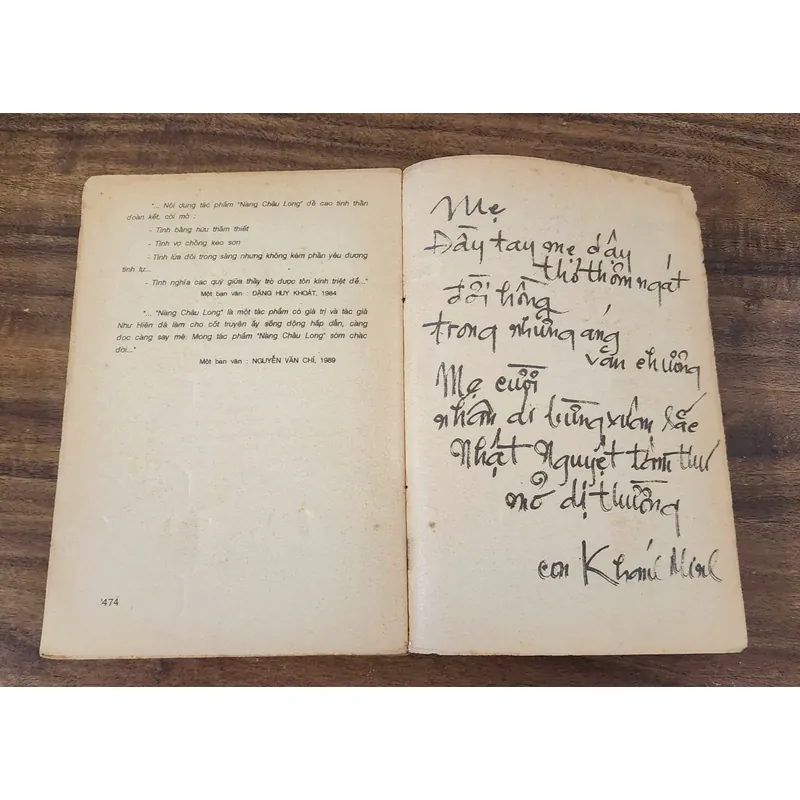 "... Nội dung tác phẩm "Nàng Châu Long" đề cao tinh thần
đoàn kết, cởi mở :
- Tình bằng hữu thắm thiết
- Tình vợ chồng keo sơn
- Tình lứa đôi trong sáng nhưng không kém phần yêu đương
tình tự...
- Tình nghĩa cao quý giữa thầy trò được tôn kính triệt để..."
Một bạn văn : ĐẶNG HUY KHOÁT, 1984
"... "Nàng Châu Long" là một tác phẩm có giá trị và tác giả
Như Hiên đã làm cho cốt truyện ấy sống động hấp dẫn, càng
đọc càng say mê. Mong tác phẩm "Nàng Châu Long" sớm chào
đời..."
Một bạn văn : NGUYỄN VĂN CHỈ, 1989
474
Mẹ
Đầy tay mẹ dậy
thơ thơm ngát
đời hồng
trong những áng
văn chương
Mẹ cười
nhân di bừng xuân sắc
Nhật Nguyệt tâm thư
mở dị thường
con Khánh Minh